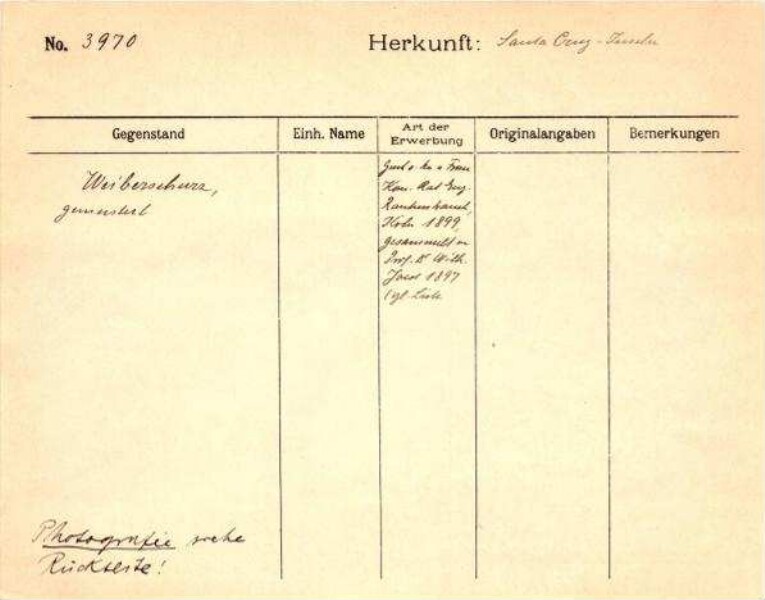 No. 3970
Herkunft: Santa Cruz-Inseln
Gegenstand
Einh. Name
Art der Erwerbung
Originalangaben
Bemerkungen
Weiberschurz,
gemustert
Frau
Kom. Rat Eug.
Rautenstrauch,
Köln 1899,
gesammelt v.
Prof. Dr Wilh.
Joest 1897
vgl. Liste
Photografie siehe
Rückseite!